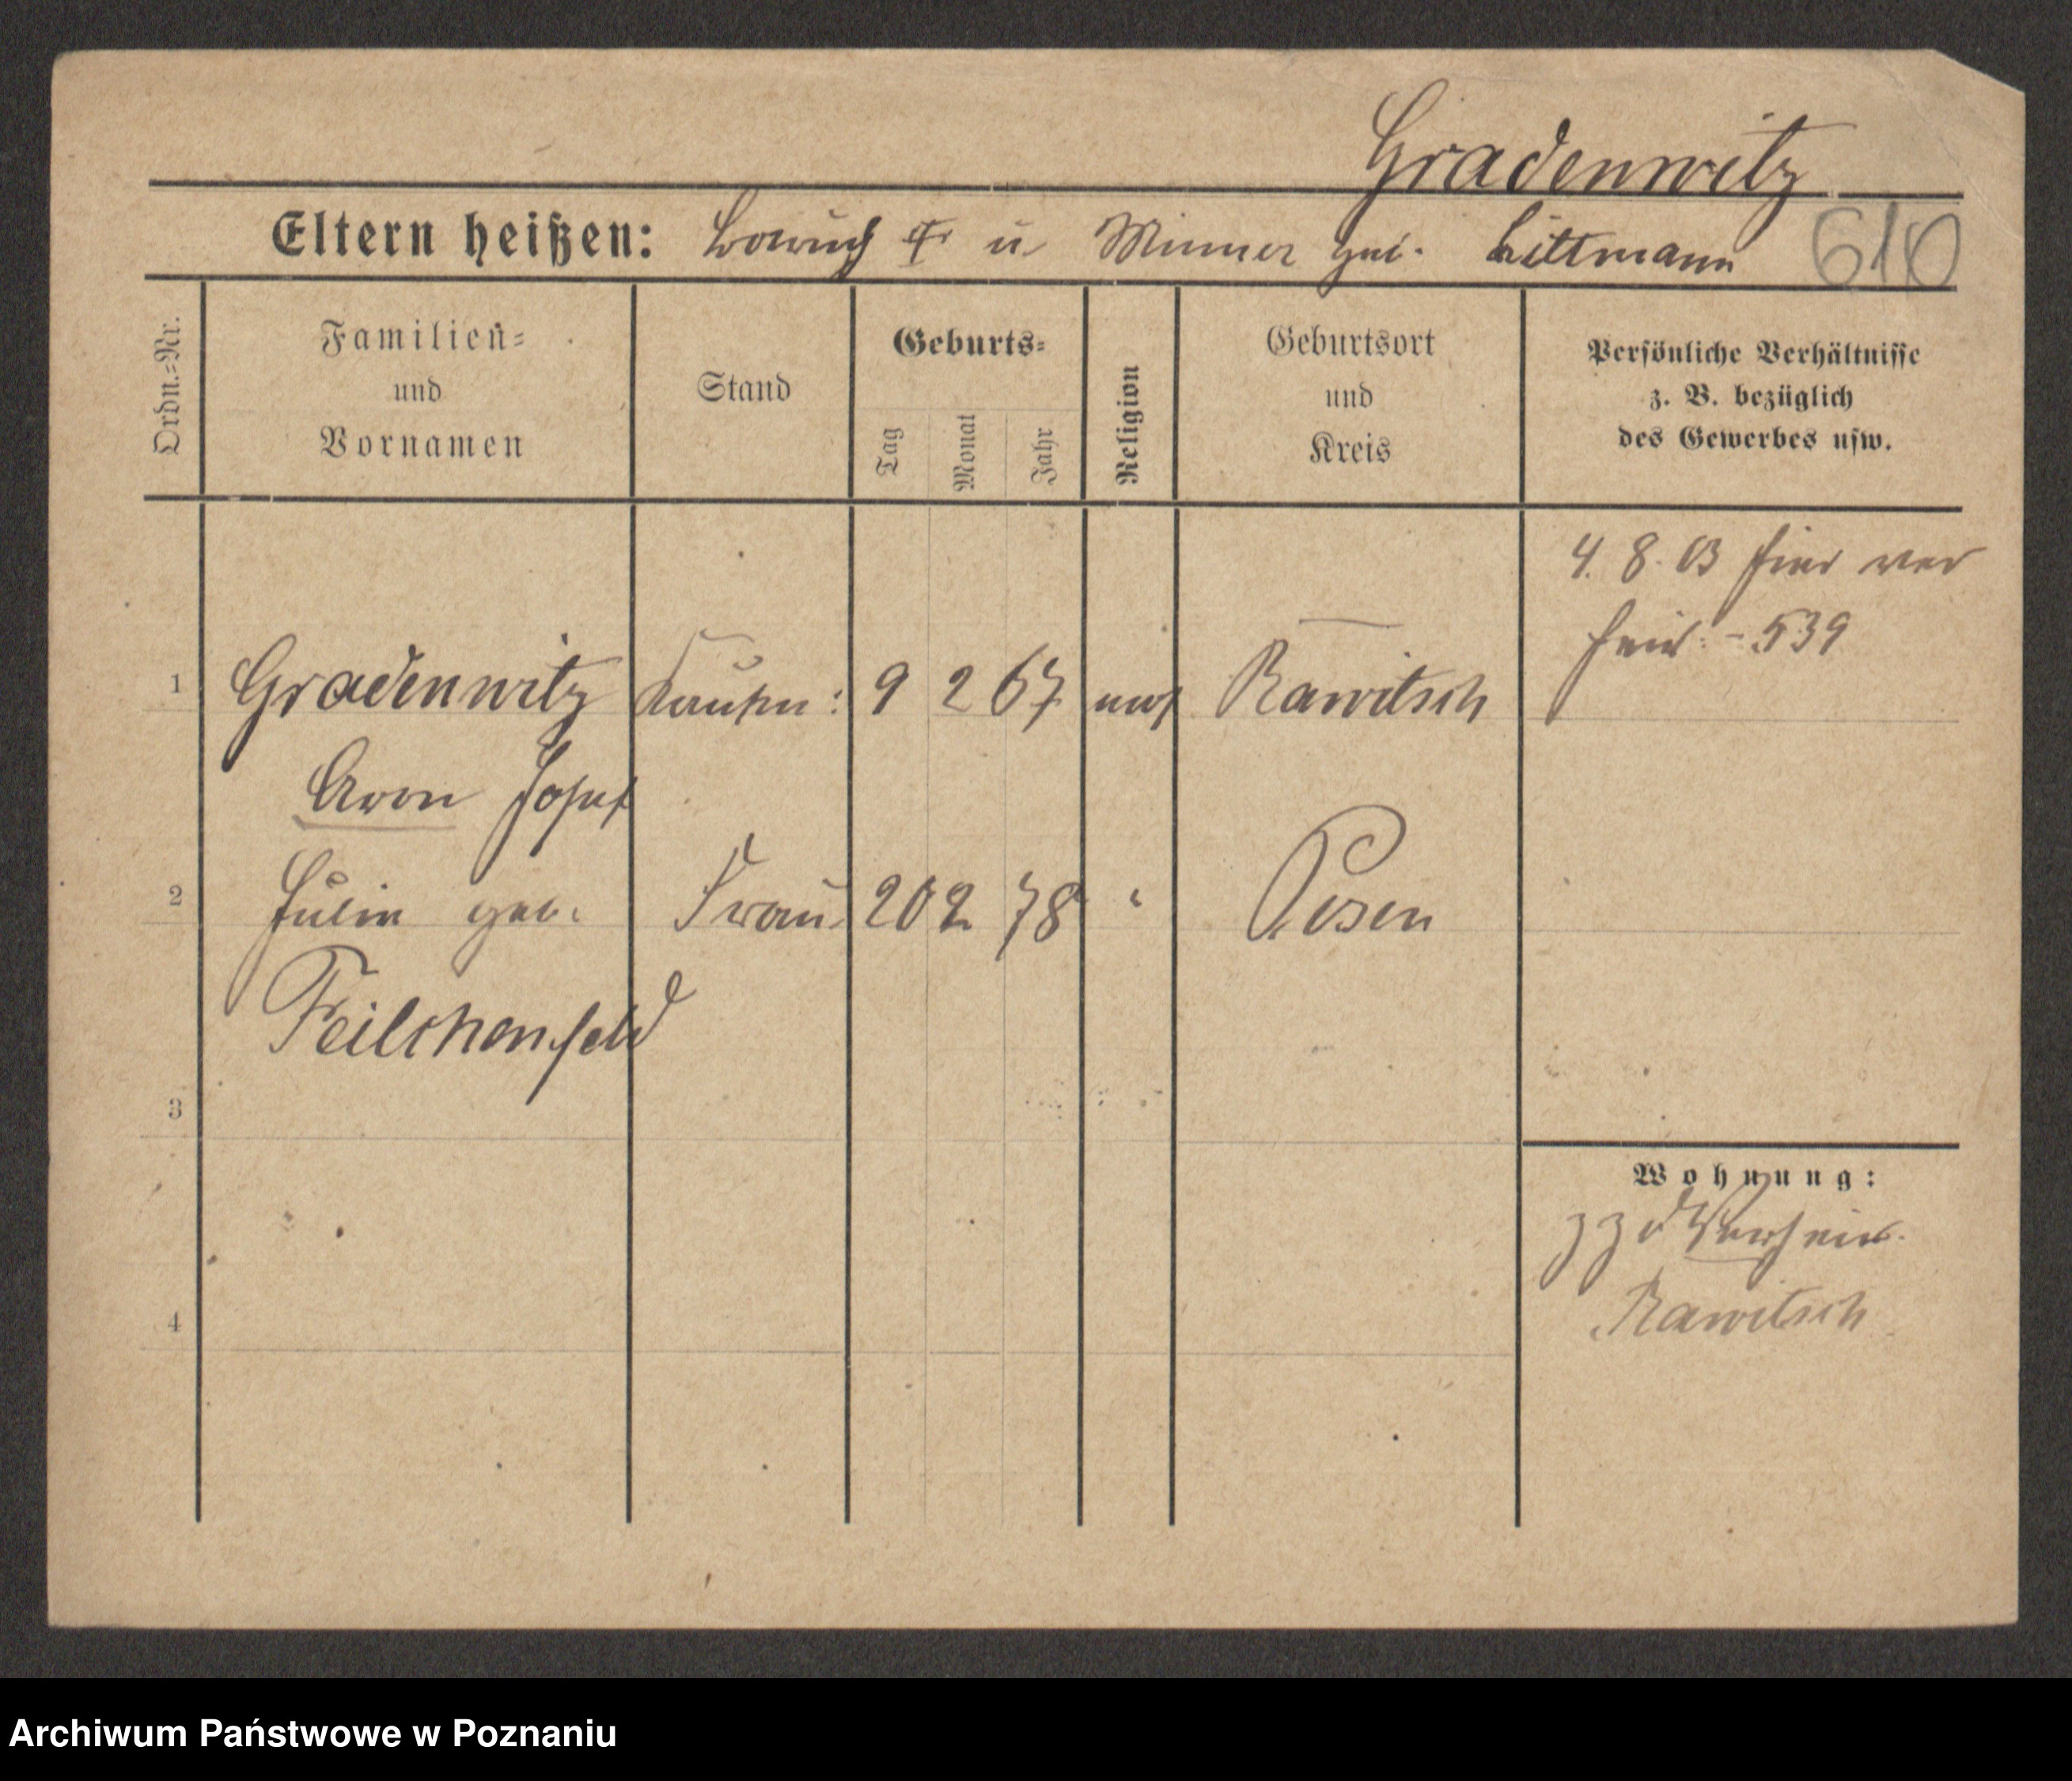 Gradenwitz
Eltern heißen: u. geb. Littmann 610
Ordn.-Nr.
Familien- und Vornamen
Stand
Geburts-
Tag Monat Jahr
Religion
Geburtsort und Kreis
Persönliche Verhältnisse
z. B. bezüglich
des Gewerbes usw.
4. 8. 03 hier ver
heir. - 539
1 Gradenwitz Kaufm: 9 2 67 mos Rawitsch
Aron Josef
2 Julie geb. Frau 20 2 78 " Posen
Feilchenfeld
3
Wohnung:
Rawitsch
4
Archiwum Państwowe w Poznaniu